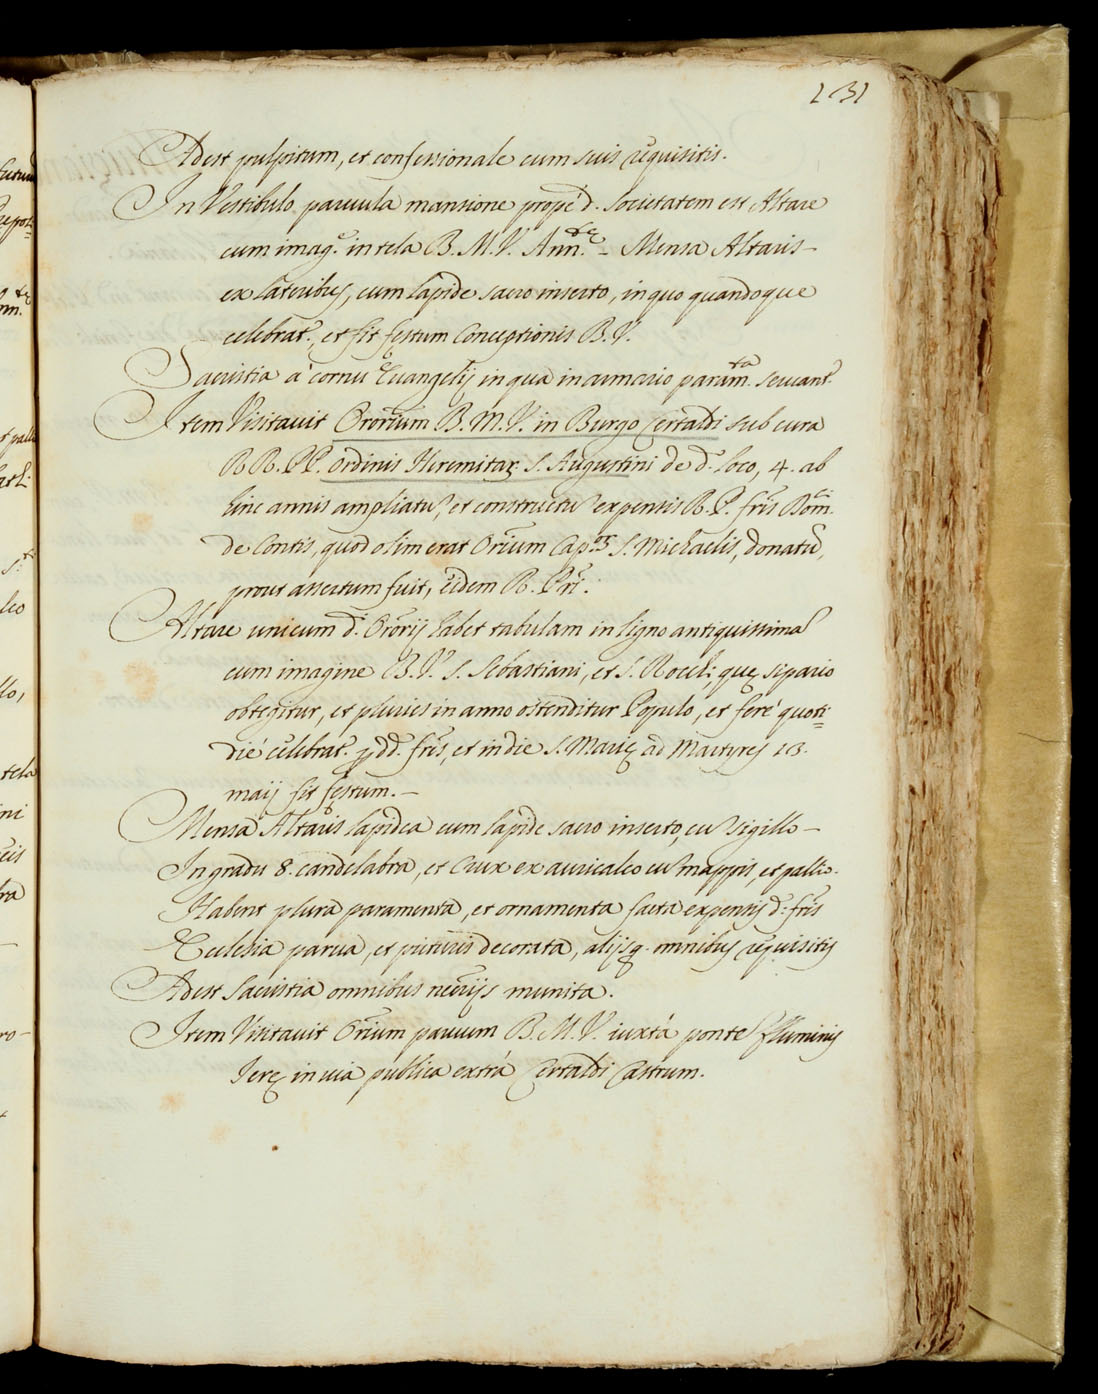 131
Adest pulpitum, et confessionale cum suis requisitis.
In Vestibulo paruula mansione prope d. Societatem est Altare
cum imag.e in tela B. M. V. Ann.tę - Mensa Altaris -
ex lateribus, cum lapide sacro inserto, in quo quandoque
celebrat.r, et fit festum Conceptionis B. V.
Sacristia à cornu Euangelij in qua in armario param.ta seruant.r
Item Visitauit Ororium B. M. V. in Burgo Certaldi sub cura
RR. PP. Ordinis Heremitar. S. Augustini de d.o loco, 4. ab
hinc annis ampliatũ, et constructũ expensis R. P. fr̃is Dom.ci
de Contis, quod olim erat Oriũm Cap. S. Michaelis, donatũ,
prout assertum fuit, eidem R. Pri.
Altare unicum d.i Ororij habet tabulam in ligno antiquissimã
cum imagine B. V. S. Sebastiani, et S. Rocchi, quę sipario
obtegitur, et pluries in anno ostenditur Populo, et ferè quoti=
die celebrat.r p dd. fr̃es, et in die S. Marię ad Martyres 13.
maij fit festum. -
Mensa Altaris lapidea cum lapide sacro inserto, cũ sigillo -
In gradu 8. candelabra, et Crux ex auricalco cũ mappis, et pallio.
Habent plura paramenta, et ornamenta facta expensis d.i fr̃is
Ecclesia parua, et picturis decorata, alijsq. omnibus requisitis
Adest Sacristia omnibus necrijs munita.
Item Visitauit Orium paruum B. M. V. iuxtà pontẽ fluminis
in uia publica extrà Certaldi Castrum.